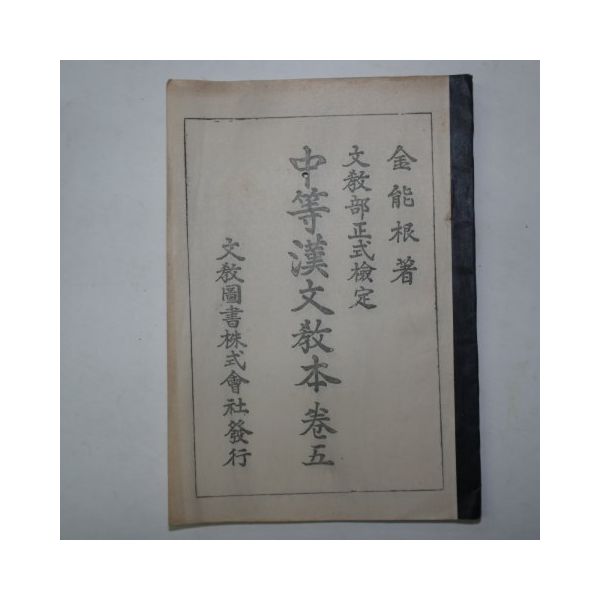 金能根著
文教部正式檢定
中等漢文教本 卷五
文教圖書株式會社發行